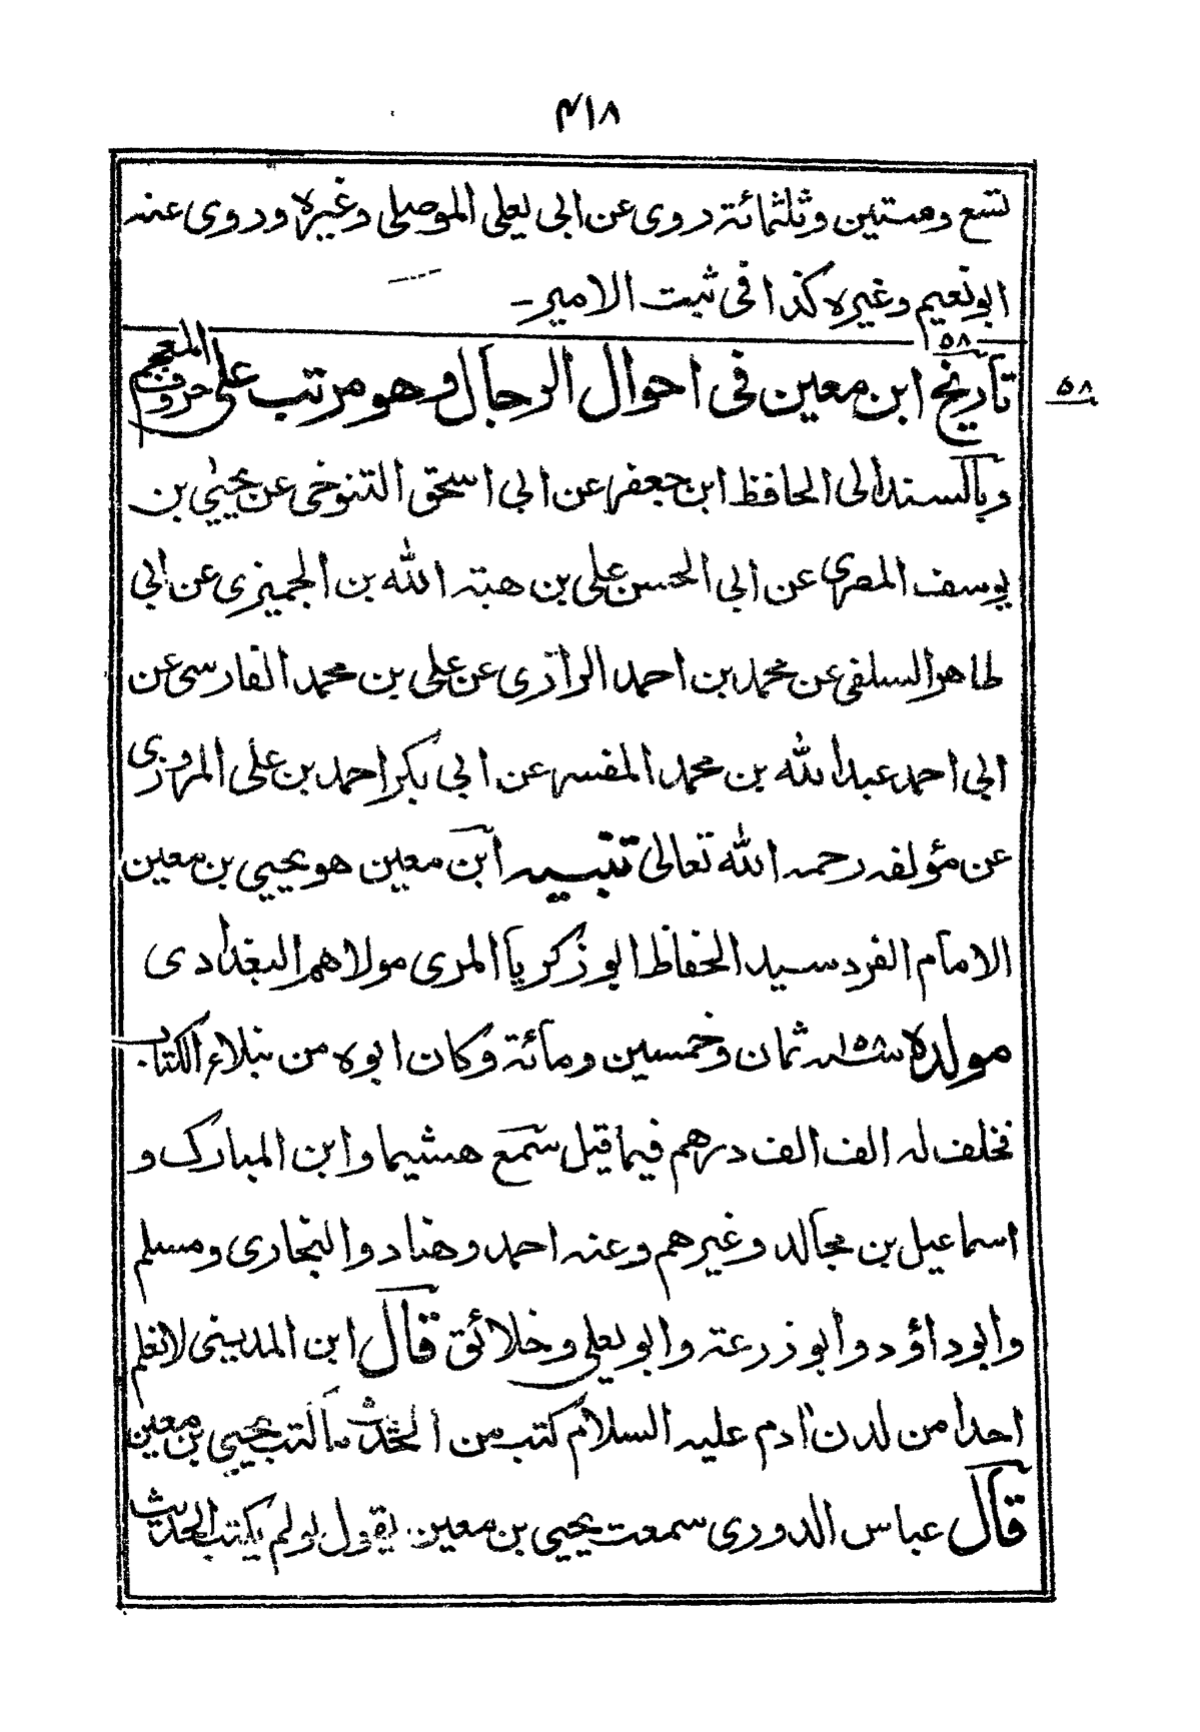 ۴۱۸
تسع وستين وثلثمائة روى عن ابى يعلى الموصلى وغيره وروى عنه
ابو نعيم وغيره كذا فى ثبت الامير ـ
۵۸
تاريخ ابن معين فى احوال الرجال وهو مرتب على حروف المعجم
۵۸
وبالسند الى الحافظ ابن جعفر عن ابى اسحق التنوخى عن يحيى بن
يوسف المصرى عن ابى الحسن على بن هبة الله بن الجميزى عن ابى
طاهر السلفى عن محمد بن احمد الرازى عن على بن محمد الفارسى عن
ابى احمد عبد الله بن محمد المفسر عن ابى بكر احمد بن على المروزى
عن مؤلفه رحمه الله تعالى تنبيه ابن معين هو يحيى بن معين
الامام الفرد سيد الحفاظ ابو زكريا المرى مولاهم البغدادى
مولده سنه ۱۵۸ ثمان وخمسين ومائة وكان ابوه من نبلاء الكتاب
فخلف له الف الف درهم فيما قيل سمع هشيما وابن المبارك و
اسماعيل بن مجالد وغيرهم وعنه احمد وهناد والبخارى ومسلم
وابو داؤد وابو زرعة وابو يعلى وخلائق قال ابن المدينى لا نعلم
احدا من لدن آدم عليه السلام كتب من الحديث ما كتب يحيى بن معين
قال عباس الدورى سمعت يحيى بن معين يقول لو لم يكتب الحديث